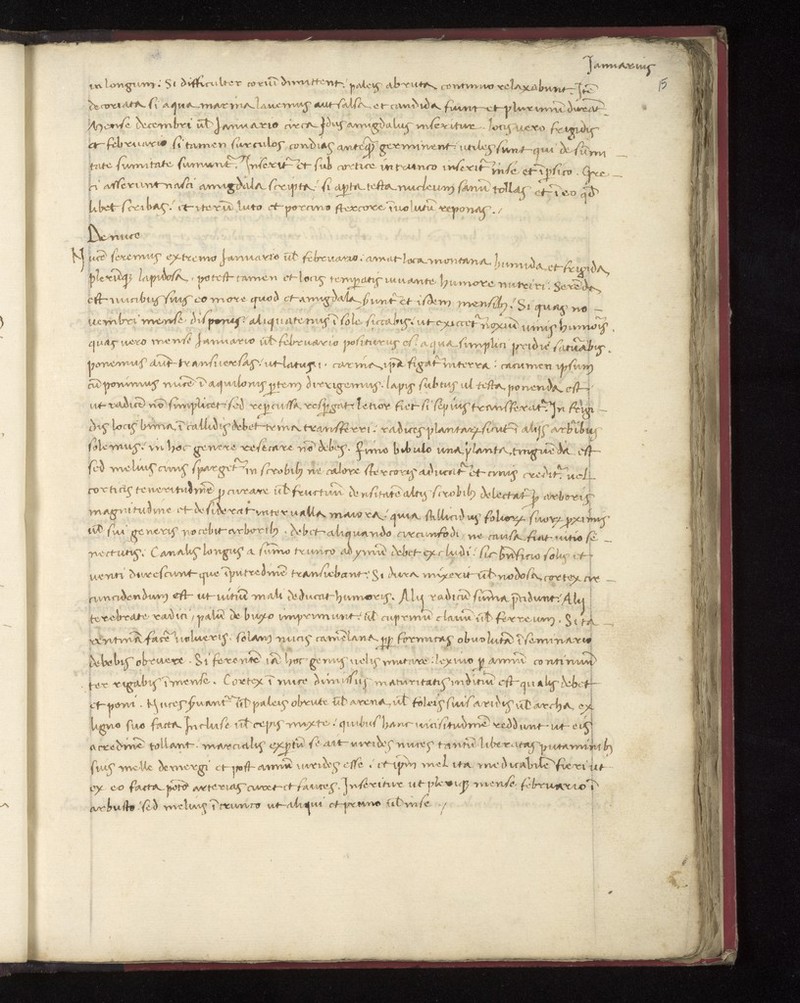 Jannarius
15
in longum. Si difficulter coriũ dimittent: paleis abruta continuo relaxabunt. Itẽ
decoriata si aqua marina lauemus aut salsa et candida fiunt et plurimũ durãt.
Mense decembri ul̃ Januario circa Idus amigdalus inseritur. locis uero frigidis
et februario si tamen surculos condias anteq̃ germinent: utiles sunt qui de sũmi
tate sumitate sumunt̃. Inserit̃ et sub cortice in trunco inserit̃ ĩn se et ĩ persico. Gre
ci asserunt nasci amigdala scripta: si aperta testa nucleum sanũ tollas et ĩ eo qd̃
libet scribas: et iterũ luto et porcino stercore ĩuolutũ reponas.
De nuce
Nucẽ seremus extremo Januario ul̃ februario. amat loca montana humida et frigida
plerũq; lapidosa. potest tamen et locis temperatis iuuante humore nutriri. Serẽda
est nucibus suis eo more quod et amigdala serunt̃ et isdem mensib. Si quas no
uembri mense dispones: aliquatenus ĩ sole siccabis: ut exiccet̃ noxiũ uirus humoris.
quas uero mense Januario ul̃ februario positurus es: aqua simplici pridie saturabis.
ponemus aũt transuersas: ut latus .i. carina ipa figat̃ in terra. cacumen ipsum
cũ ponimus nucẽ ĩ aquilonis partem dirrigemus. lapis subtus ul testa ponenda est
ut radicẽ nõ simplicet: sed repercussa respergat. letior fiet si sepius transferat̃. In frigi
dis locis bima, ĩ callidis debet trima transferri. radices plantarum sicut ĩ alijs arboribus
solemus: in hoc genere resecare nõ debes. fimo bibulo una planta tinguẽda est
sed melius cinis spargit̃ in scrobib ne calore stercoris aduratur et cinis creditur uel
corticis teneritudinẽ procurare ul̃ fructuum densitatẽ altis scrobib delectat̃ pro arboris
magnitudine et desiderat interualla maiora: quia stillicidiis foliorum suorum proximis
ul̃ sui generis nocebit arborib. debet aliquando circunfodi: ne causa fiat uitio se
nectutis. Canalis longus a sũmo trunco ad ymum debet excludi: sic bnficio solis et
uenti durescunt que ĩ putredinẽ transiebant. Si dura nuxerit ul̃ nodosa cortex cir
cuncidendum est ut uitiũ mali deducat humoris. Alij radicũ sũma precidunt. Alij
terebrate radici palũ de buxo imprimunt: ul̃ cuprinũ clauũ ul̃ ferreum. Si ta
rentinã facẽ uolueris. solam nucis carnẽ lana propter formicas obuolutã ĩ seminario
debebis obruere. Si ferentẽ iã hoc genus uelis mutare. lexiuo per annũ continuũ
ter rigabis ĩ mense. Cortex ĩ nuce dimissus maturitatis inditium est qualis debet
et poni. Nuces seruant̃ ul̃ paleis obrute ul̃ arena, ul̃ foleis suis aridis ul̃ archa ex
ligno suo facta Incluse ul̃ cepis mixte: quibus hanc uicissitudinẽ reddunt ut eis
acredinẽ tollant. marcialis expertũ se ait uirides nuces tantũ liberatas putaminib
suis melle demergi et post annũ uirides esse. et ipm mel ita medicabile fieri ut
ex eo facta potio arterias curet et fauces. Inseritur ut plerique mense februario ĩ
arbusto sed melius ĩ trunco ut aliqui et pruno ul̃ in se.